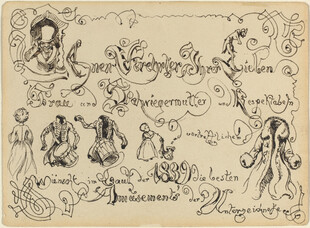 Ihnen Verehrter Ihrer Lieben
Frau und Schwiegermutter und
wünscht im Lauf der 1839 die besten
Amusements der Unterzeichnete